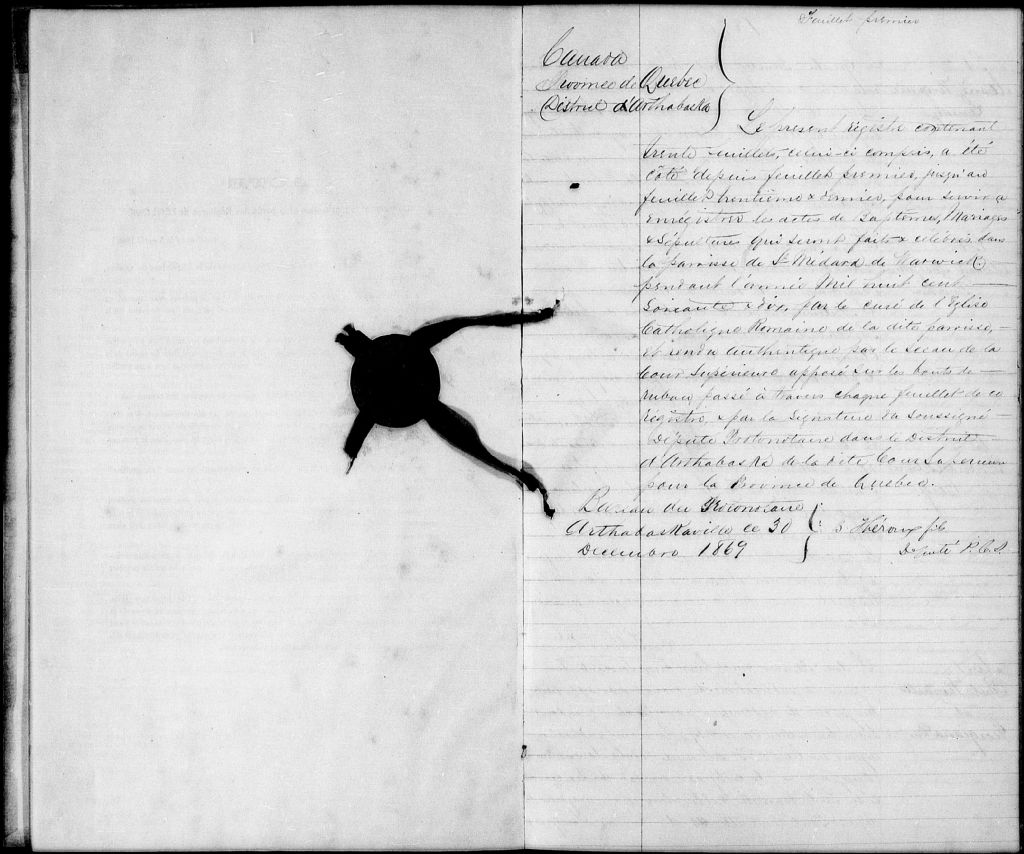 Feuillet premier
Canada
Province de Québec
District d'Arthabaska
Le présent régistre contenant
trente feuillets, celui-ci compris, a été
côté depuis feuillet premier, jusqu'au
feuillet trentième & dernier, pour servir a
enrégistrer les actes de Baptêmes, Mariages
& Sépultures qui seront faits & célébrés dans
la paroisse de St Médard de Warwick
pendant l'année Mil huit cent
Soixante & dix, par le curé de l'Eglise
Catholique Romaine de la dite paroisse,
et rendu authentique par le sceau de la
Cour Supérieure apposé sur les bouts du
ruban passé à travers chaque feuillet de ce
régistre, & par la signature du Soussigné
Député Protonotaire dans le District
d'Arthabaska de la dite Cour Supérieure
pour la Province de Québec.
Bureau du Protonotaire
Arthabaskaville ce 30
Décembre 1869
Héroux
Député P.C.S.